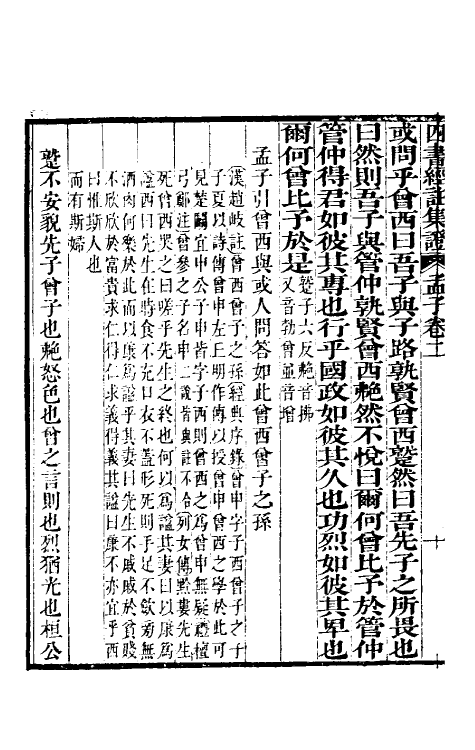 四書經註集證 孟子卷二 十
或問乎曾西曰吾子與子路孰賢曾西蹵然曰吾先子之所畏也
曰然則吾子與管仲孰賢曾西艴然不悅曰爾何曾比予於管仲
管仲得君如彼其專也行乎國政如彼其久也功烈如彼其卑也
爾何曾比予於是
蹵子六反艴音拂
又音勃曾並音增
孟子引曾西與或人問答如此曾西曾子之孫
漢趙岐註曾西曾子之孫經典序錄曾申字子西曾子之子
子夏以詩傳曾申左丘明作傳以授曾申曾西之學於此可
見楚鬬宜申公子申皆字子西則曾西之爲曾申無疑禮檀
弓鄭注曾參之子名申
列女傳黔婁先生
死曾西哭之曰嗟乎先生之終也何以爲諡其妻曰以康爲
諡西曰先生在時食不充口衣不蓋形死則手足不斂旁無
酒肉何樂於此而以康爲諡乎其妻曰先生不戚戚於貧賤
不欣欣於富貴求仁得仁求義得義其諡曰康不亦宜乎西
曰惟斯人也
而有斯婦
蹵不安貌先子曾子也艴怒色也曾之言則也烈猶光也桓公